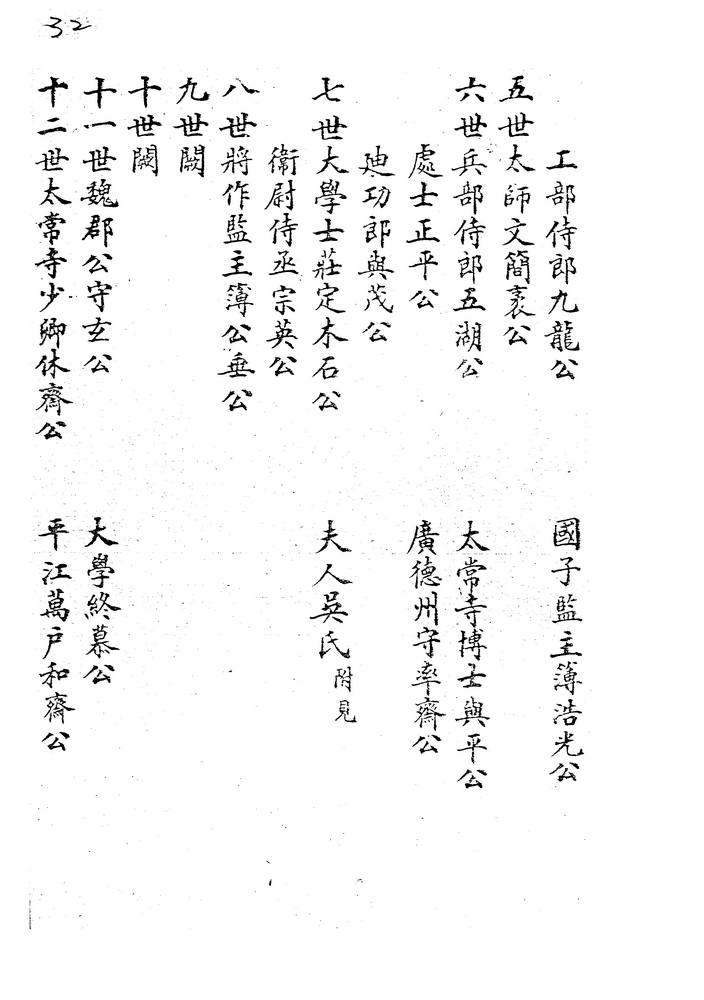 32
工部侍郎九龍公　國子監主簿浩光公
五世太師文簡裏公
六世兵部侍郎五湖公　太常寺博士與平公
處士正平公　廣德州守率齋公
廸功郎與茂公
七世大學士莊定木石公　夫人吳氏附見
衞尉侍丞宗英公
八世將作監主簿公垂公
九世闕
十世闕
十一世魏郡公守玄公　大學終慕公
十二世太常寺少卿休齋公　平江萬戶和齋公